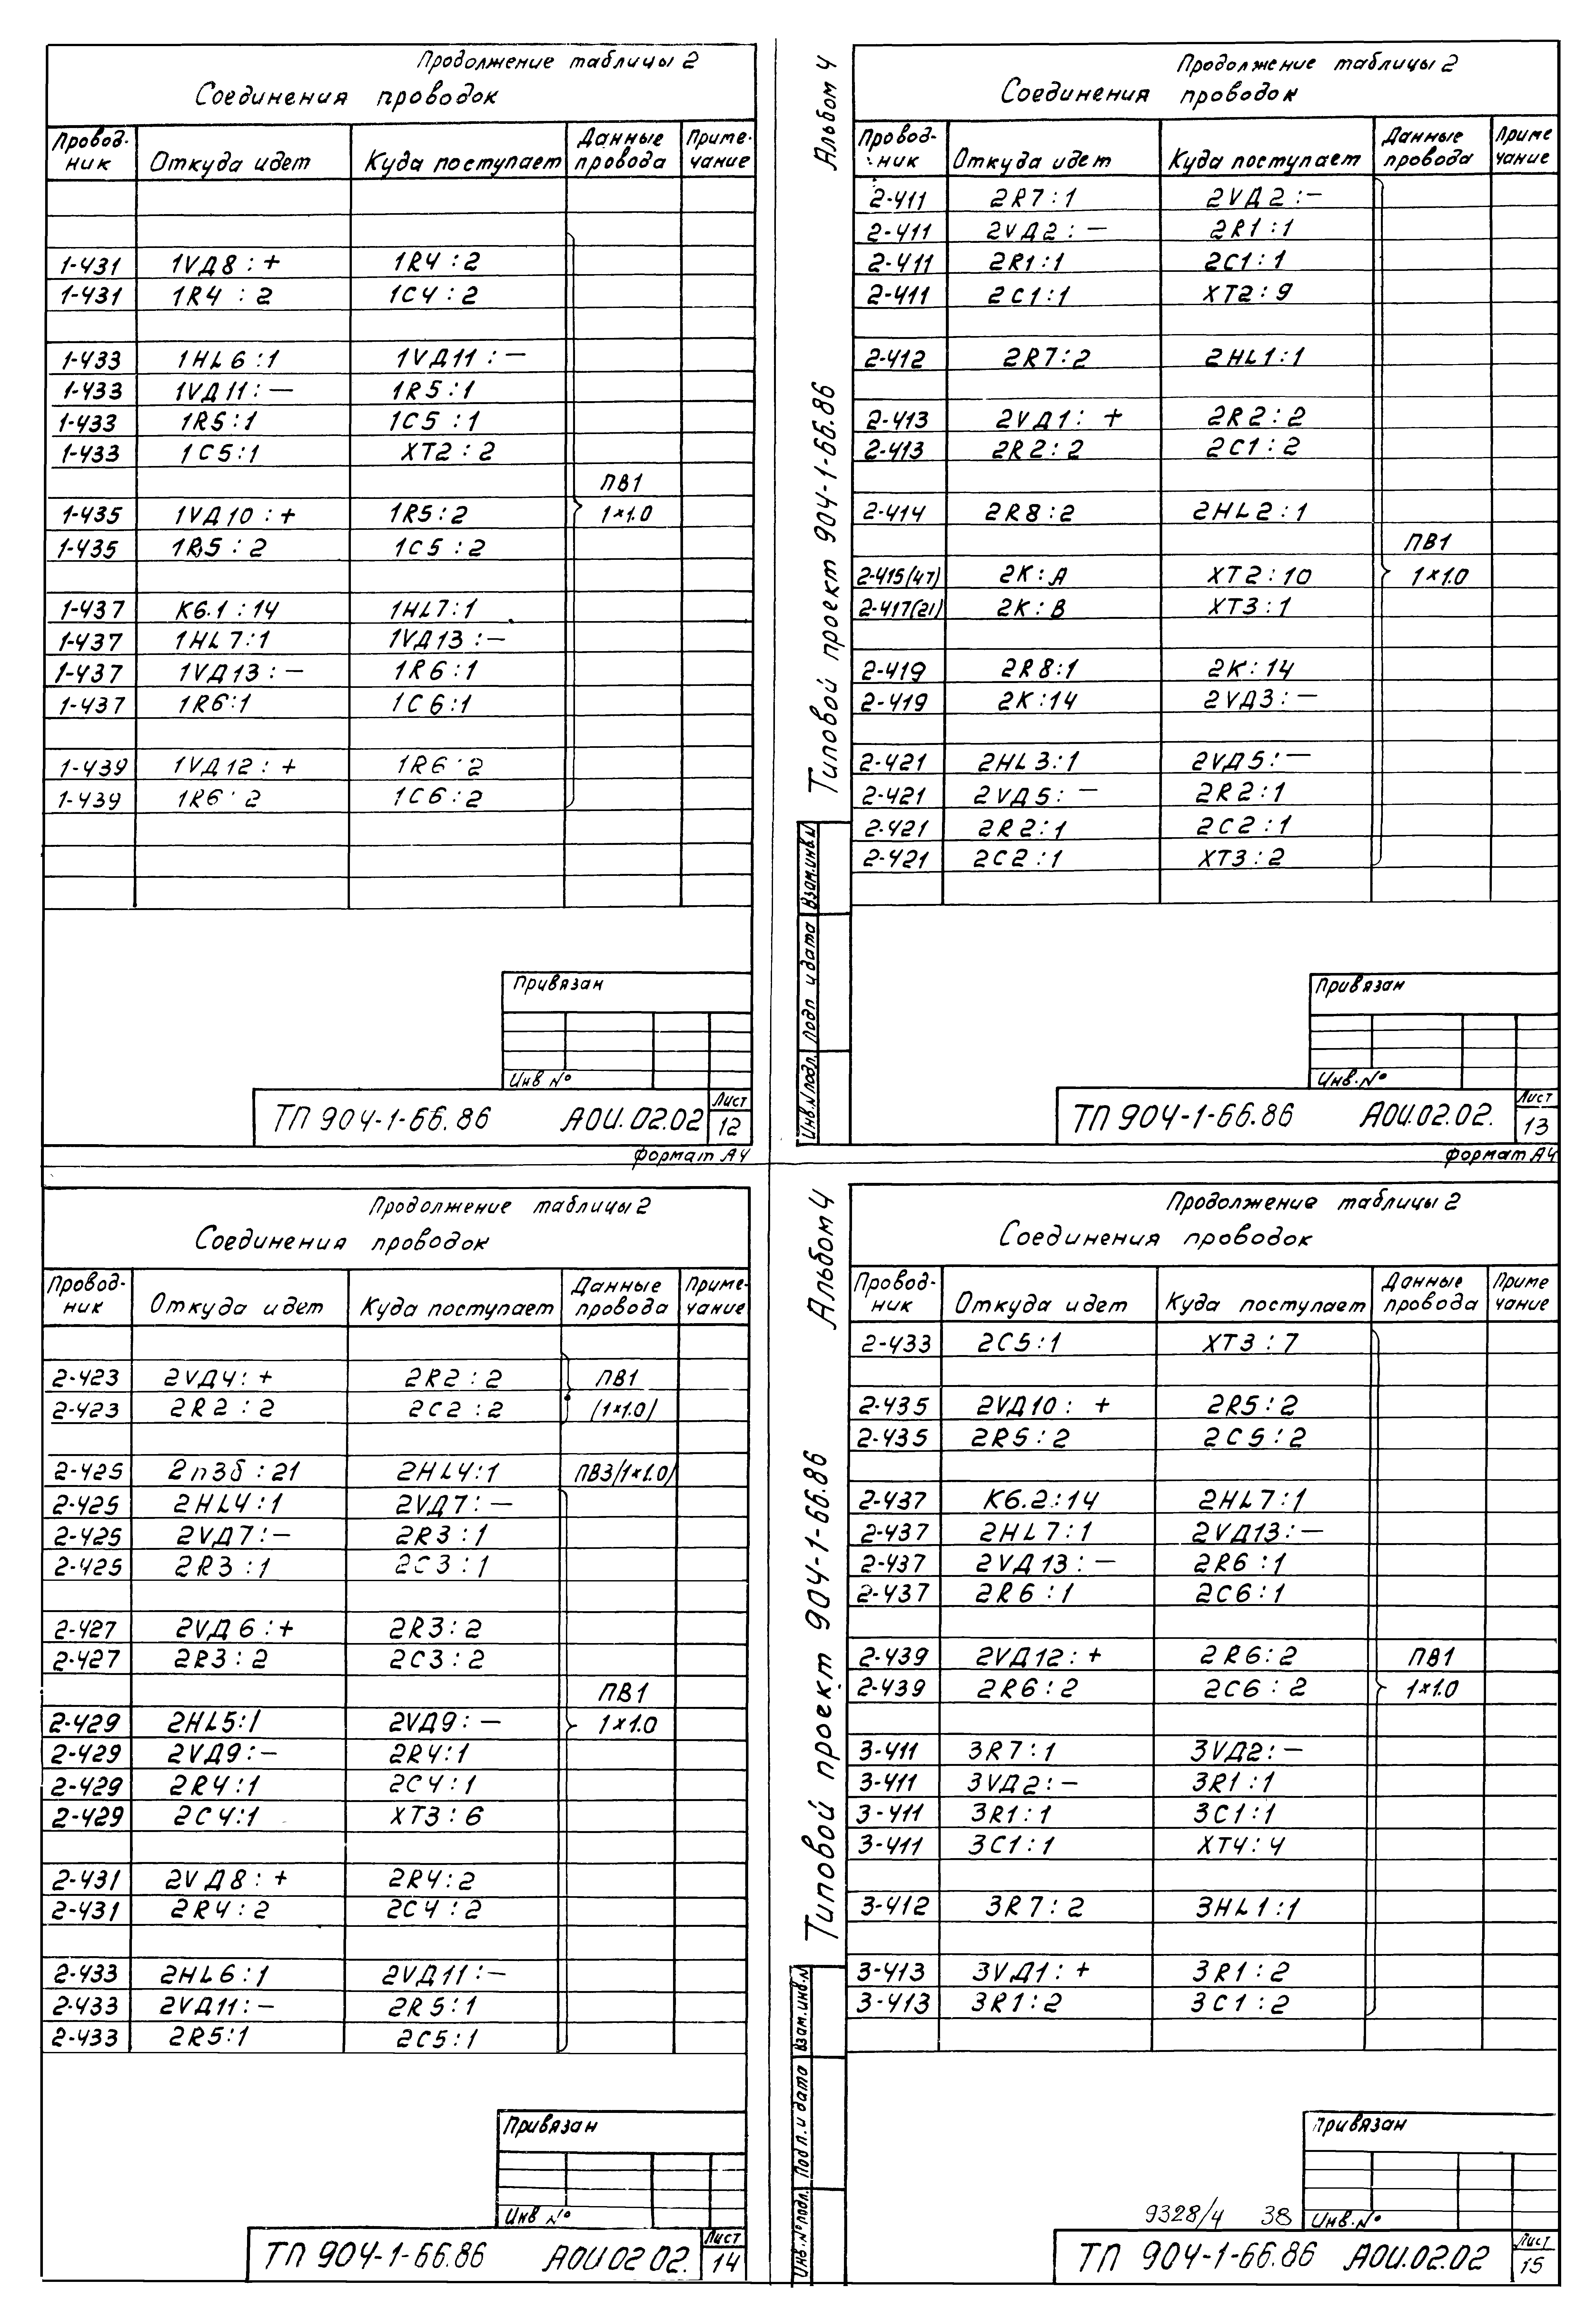 Продолжение таблицы 2
Соединения проводок
Провод-ник Откуда идет Куда поступает Данные провода Приме-чание
1-431 1VД8 : + 1R4 : 2
1-431 1R4 : 2 1C4 : 2
1-433 1HL6 : 1 1VД11 : —
1-433 1VД11 : — 1R5 : 1
1-433 1R5 : 1 1C5 : 1
1-433 1C5 : 1 XT2 : 2
ПВ1
1-435 1VД10 : + 1R5 : 2 1×1.0
1-435 1R5 : 2 1C5 : 2
1-437 K6.1 : 14 1HL7 : 1
1-437 1HL7 : 1 1VД13 : —
1-437 1VД13 : — 1R6 : 1
1-437 1R6 : 1 1C6 : 1
1-439 1VД12 : + 1R6 : 2
1-439 1R6 : 2 1C6 : 2
Привязан
Инв №
ТП 904-1-66.86 АОИ.02.02 Лист 12
Формат А4
Альбом 4
Типовой проект 904-1-66.86
Взам.инв.№
Подп. и дата
Инв.№ подл.
Продолжение таблицы 2
Соединения проводок
Провод-ник Откуда идет Куда поступает Данные провода Приме чание
2-411 2R7 : 1 2VД2 : —
2-411 2VД2 : — 2R1 : 1
2-411 2R1 : 1 2C1 : 1
2-411 2C1 : 1 XT2 : 9
2-412 2R7 : 2 2HL1 : 1
2-413 2VД1 : + 2R2 : 2
2-413 2R2 : 2 2C1 : 2
2-414 2R8 : 2 2HL2 : 1
ПВ1
2-415(47) 2K : A XT2 : 10 1×1.0
2-417(21) 2K : B XT3 : 1
2-419 2R8 : 1 2K : 14
2-419 2K : 14 2VД3 : —
2-421 2HL3 : 1 2VД5 : —
2-421 2VД5 : — 2R2 : 1
2-421 2R2 : 1 2C2 : 1
2-421 2C2 : 1 XT3 : 2
Привязан
Инв. №
ТП 904-1-66.86 АОИ.02.02. Лист 13
Формат А4
Продолжение таблицы 2
Соединения проводок
Провод-ник Откуда идет Куда поступает Данные провода Приме-чание
2-423 2VД4 : + 2R2 : 2 ПВ1
2-423 2R2 : 2 2C2 : 2 (1×1.0)
2-425 2п3б : 21 2HL4 : 1 ПВ3(1×1.0)
2-425 2HL4 : 1 2VД7 : —
2-425 2VД7 : — 2R3 : 1
2-425 2R3 : 1 2C3 : 1
2-427 2VД6 : + 2R3 : 2
2-427 2R3 : 2 2C3 : 2
ПВ1
2-429 2HL5 : 1 2VД9 : — 1×1.0
2-429 2VД9 : — 2R4 : 1
2-429 2R4 : 1 2C4 : 1
2-429 2C4 : 1 XT3 : 6
2-431 2VД8 : + 2R4 : 2
2-431 2R4 : 2 2C4 : 2
2-433 2HL6 : 1 2VД11 : —
2-433 2VД11 : — 2R5 : 1
2-433 2R5 : 1 2C5 : 1
Привязан
Инв №
ТП 904-1-66.86 АОИ.02.02. Лист 14
Альбом 4
Типовой проект 904-1-66.86
Взам.инв.№
Подп. и дата
Инв.№ подл.
Продолжение таблицы 2
Соединения проводок
Провод-ник Откуда идет Куда поступает Данные провода Приме чание
2-433 2C5 : 1 XT3 : 7
2-435 2VД10 : + 2R5 : 2
2-435 2R5 : 2 2C5 : 2
2-437 K6.2 : 14 2HL7 : 1
2-437 2HL7 : 1 2VД13 : —
2-437 2VД13 : — 2R6 : 1
2-437 2R6 : 1 2C6 : 1
2-439 2VД12 : + 2R6 : 2 ПВ1
2-439 2R6 : 2 2C6 : 2 1×1.0
3-411 3R7 : 1 3VД2 : —
3-411 3VД2 : — 3R1 : 1
3-411 3R1 : 1 3C1 : 1
3-411 3C1 : 1 XT4 : 4
3-412 3R7 : 2 3HL1 : 1
3-413 3VД1 : + 3R1 : 2
3-413 3R1 : 2 3C1 : 2
Привязан
9328/4 38 Инв. №
ТП 904-1-66.86 АОИ.02.02 Лист 15